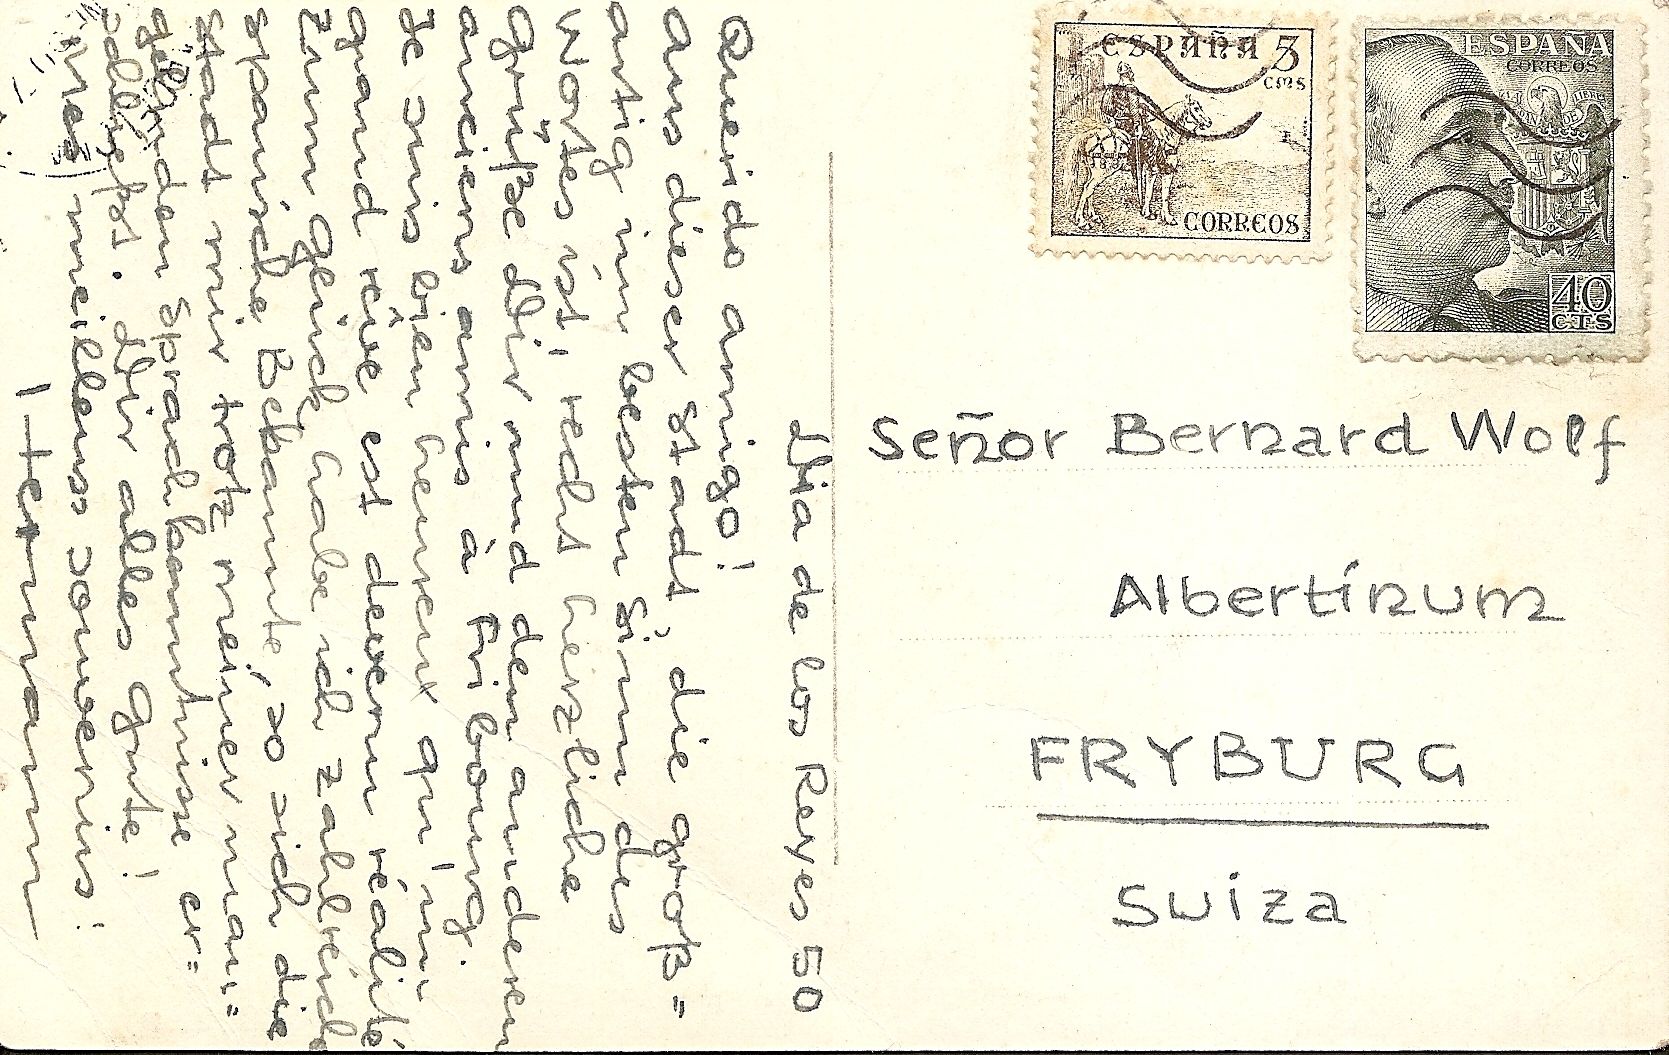 ESPAÑA 5
CMS
CORREOS
ESPAÑA
CORREOS
40
CTS
Dia de los Reyes 50
Querido amigo!
Aus dieser Stadt, die groß=
artig im besten Sinn des
Wortes ist, recht herzliche
Grüße Dir und den anderen
anciens amis à Fribourg.
Je suis bien heureux qu'un
grand rêve est devenu réalité
Zum Glück habe ich zahlreiche
spanische Bekannte, so sich die
Stadt mir trotz meiner man=
gelnden Sprachkenntnisse er=
schliesst. Dir alles Gute!
Mes meilleurs souvenirs!
Hermann
Señor Bernard Wolf
Albertinum
FRYBURG
Suiza